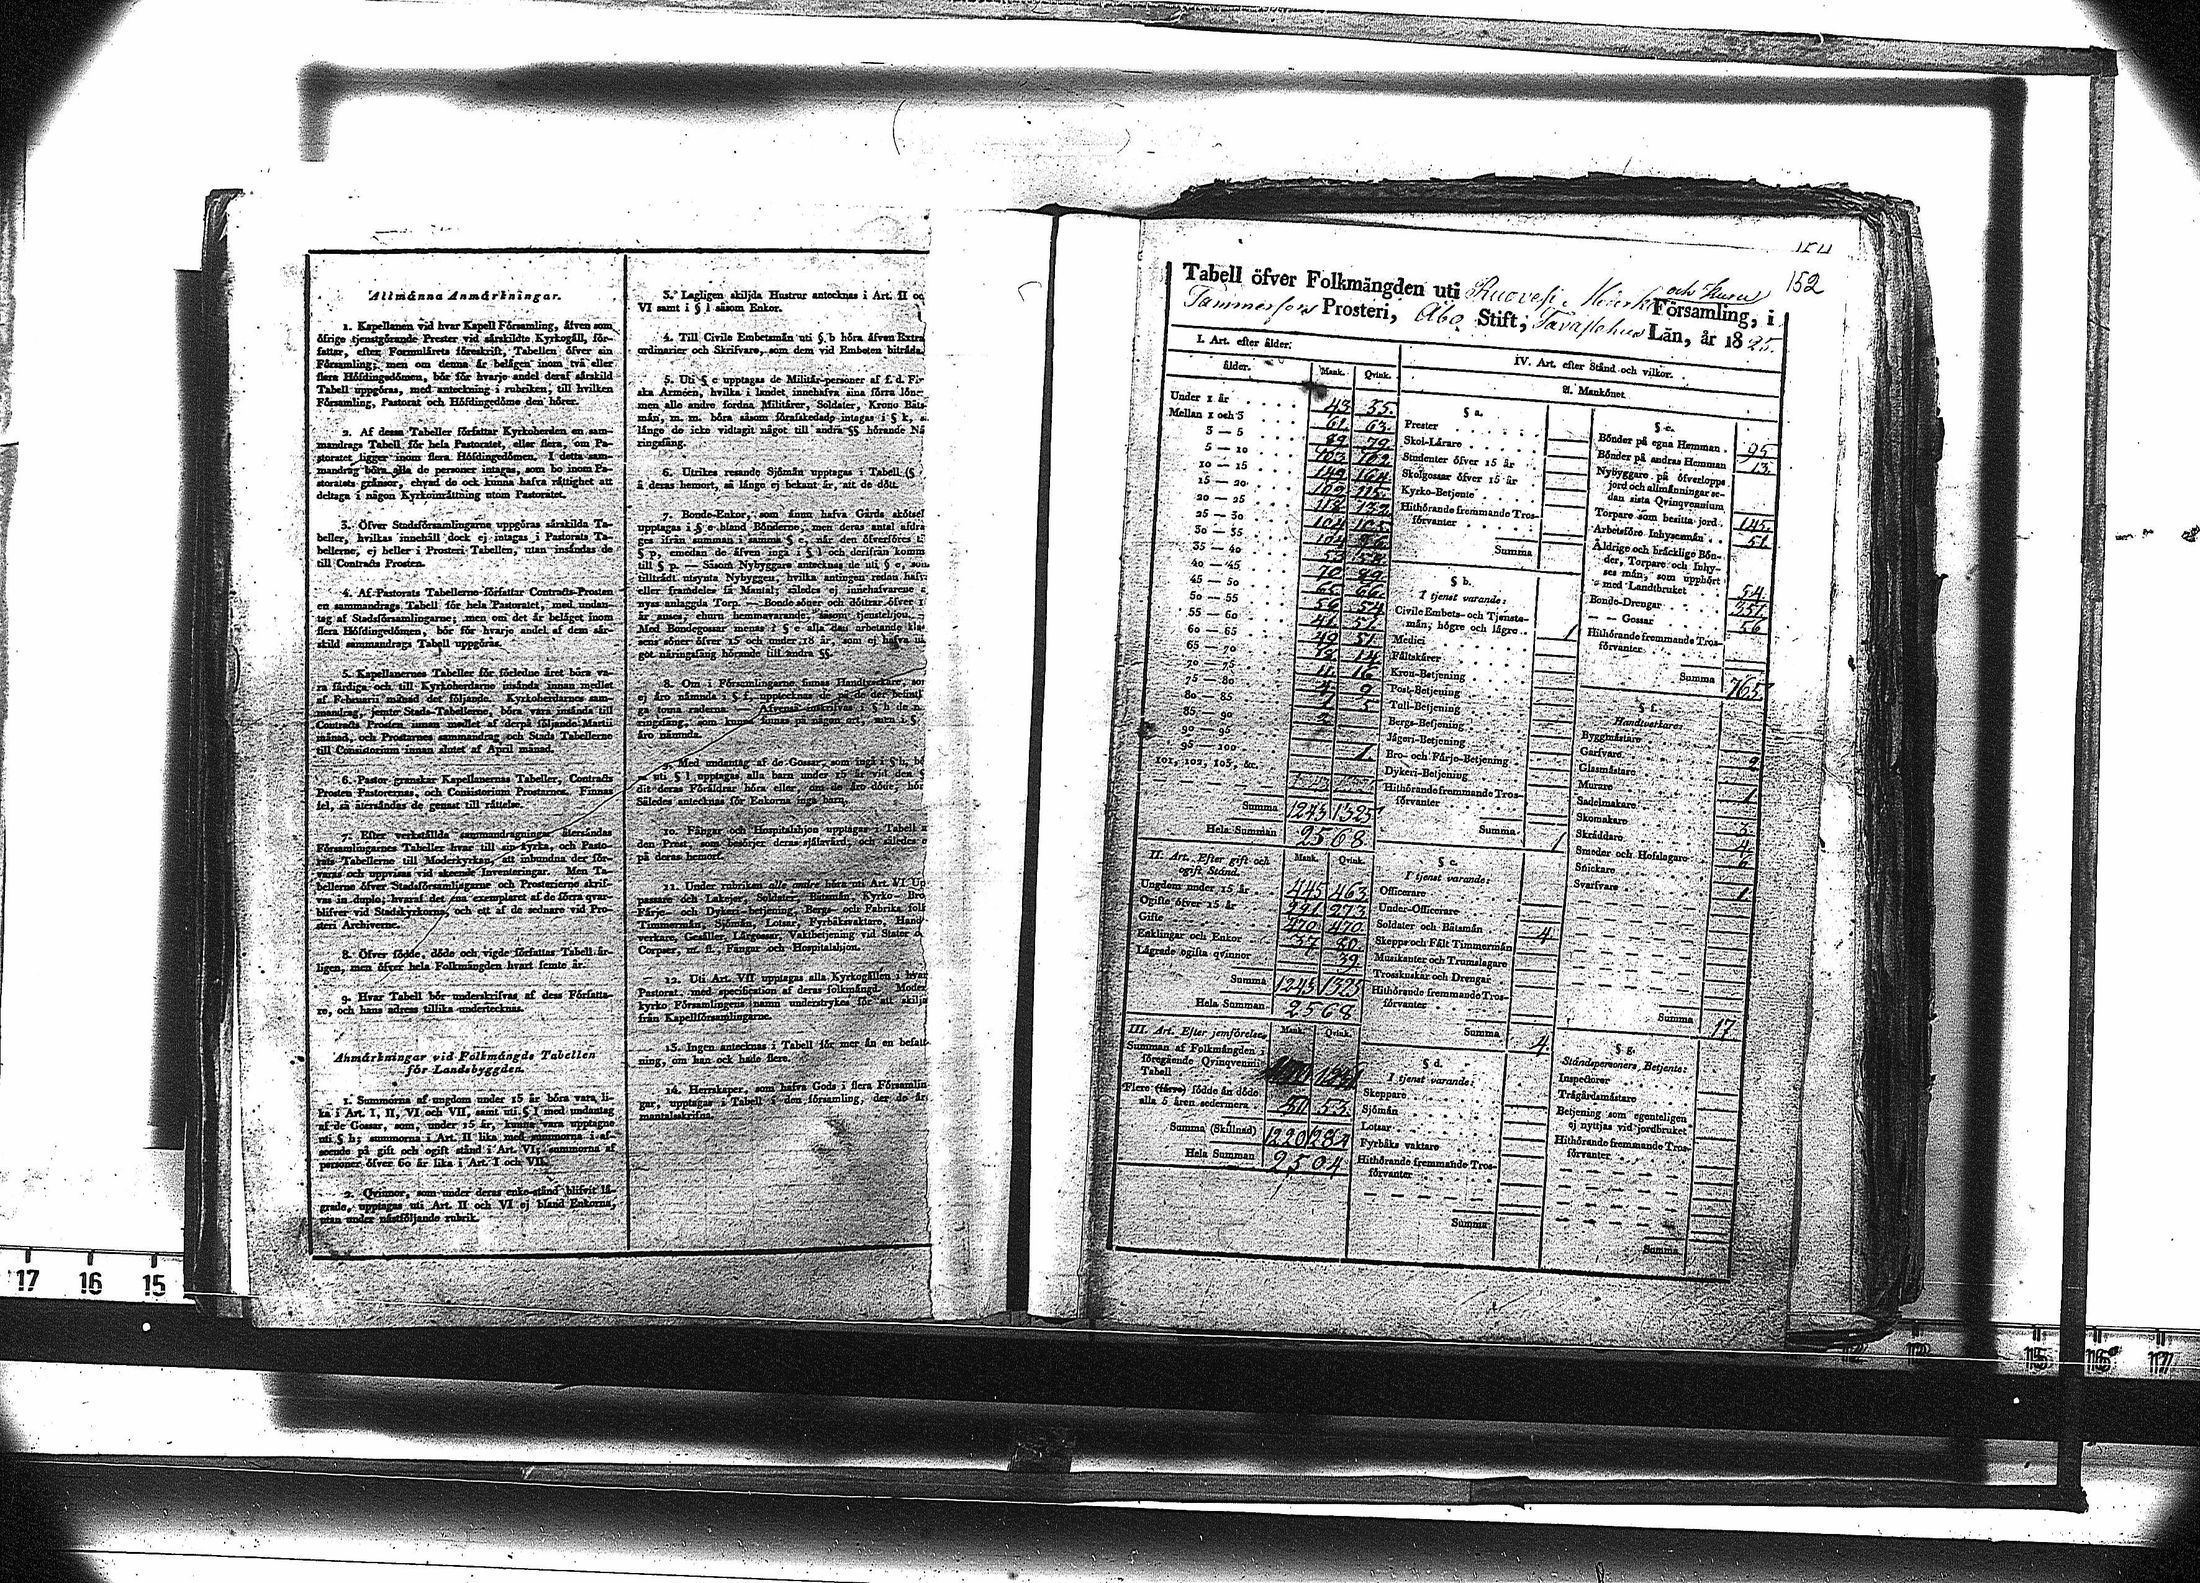 Allmänna Anmärkningar.
1. Kapellanen vid hvar Kapell Församling, äfven som
öfrige tjenstgörande Prester vid särskildte Kyrkogåll, för-
fattar, efter Formulärets föreskrift, Tabellen öfver sin
Församling; men om denna är belägen inom två eller
flera Höfdingedömen, bör för hvarje andel deraf särskild
Tabell uppgöras, med anteckning i rubriken, till hvilken
Församling, Pastorat och Höfdingedöme den hörer.
2. Af dessa Tabeller författar Kyrkoherden en sam-
mandrags Tabell för hela Pastoratet, eller flera, om Pa-
storatet ligger inom flera Höfdingedömen. I detta sam-
mandrag böra alla de personer intagas, som bo inom Pa-
storatets gränsor, ehvad de ock kunna hafva rättighet att
deltaga i någon Kyrkoinrättning utom Pastoratet.
3. Öfver Stadsförsamlingarne uppgöras särskilda Ta-
beller, hvilkas innehåll dock ej intagas i Pastorats Ta-
bellerne, ej heller i Prosteri-Tabellen, utan insändas de
till Contracts Prosten.
4. Af Pastorats Tabellerne författar Contracts-Prosten
en sammandrags Tabell för hela Pastoratet, med undan-
tag af Stadsförsamlingarne; men om det är beläget inom
flera Höfdingedömen, bör för hvarje andel af dem sär-
skild sammandrags Tabell uppgöras.
5. Kapellanernes Tabeller för förledne året böra va-
ra färdige och till Kyrkoherdarne insända innan medlet
af Februarii månad det följande. Kyrkoherdarnes sam-
mandrag, jemte Stads-Tabellerne, böra vara insända till
Contracts Prosten innan medlet af derpå följande Martii
månad, och Prostarnes sammandrag och Stads Tabellerne
till Consistorium innan slutet af April månad.
6. Pastor granskar Kapellanernas Tabeller, Contracts
Prosten Pastorernas, och Consistorium Prostarnes. Finnas
fel, så återsändas de genast till rättelse.
7. Efter verkställda sammandragningar återsändas
Församlingarnes Tabeller hvar till sin kyrka, och Pasto-
rats Tabellerne till Moderkyrkan, att inbundna der för-
varas och uppvisas vid skeende Inventeringar. Men Ta-
bellerne öfver Stadsförsamlingarne och Prosterierne skrif-
vas in duplo; hvaraf det ena exemplaret af de förra qvar-
blifver vid Stadskyrkorna, och ett af de sednare vid Pro-
steri Archiverne.
8. Öfver födde, döde och vigde författas Tabell år-
ligen, men öfver hela Folkmängden hvart femte år.
9. Hvar Tabell bör underskrifvas af dess Författa-
re, och hans adress tillika undertecknas.
Anmärkningar vid Folkmängds Tabellen
för Landsbyggden.
1. Summorna af ungdom under 15 år böra vara li-
ka i Art. I, II, VI och VII, samt uti § I med undantag
af de Gossar, som, under 15 år, kunna vara upptagne
uti § h; summorna i Art. II lika med summorna i af-
seende på gift och ogift stånd i Art. VI; summorna af
personer öfver 60 år lika i Art. I och VII.
2. Qvinnor, som under deras enke-stånd blifvit lä-
grade, upptagas uti Art. II och VI ej bland Enkorna,
utan under nästföljande rubrik.
3. Lagligen skiljda Hustrur antecknas i Art. II oc
VI samt i § l såsom Enkor.
4. Till Civile Embetsmän uti § b höra äfven Extra
ordinarier och Skrifvare, som dem vid Embeten biträda.
5. Uti § c upptagas de Militär-personer af f. d. Fi-
ska Arméen, hvilka i landet innehafva sina förra löne
men alle andre fordna Militärer, Soldater, Krono Båts
män, m. m. böra såsom förafskedade intagas i § k, s
länge de icke vidtagit något till andra §§ hörande Nä
ringsfång.
6. Utrikes resande Sjömän upptagas i Tabell (§
å deras hemort, så länge ej bekant är, att de dött.
7. Bonde-Enkor, som ännu hafva Gårds skötsel
upptagas i § e bland Bönderne, men deras antal afdra
ges ifrån summan i samma § e, när den öfverföres ti
§ p, emedan de äfven ingå i § l och derifrån komm
till § p. — Såsom Nybyggare antecknas de uti § e, som
tillträdt utsynta Nybyggen, hvilka antingen redan hafv
eller framdeles få Mantal; således ej innehafvarene a
nyss anlaggda Torp. — Bonde söner och döttrar öfver 1
år anses, ehuru hemmavarande, såsom tjenstehjon.
Med Bondegossar menas i § e alla den arbetande kla
sens söner öfver 15 och under 18 år, som ej hafva nå
got näringsfång hörande till andra §§.
8. Om i Församlingarne finnas Handtverkare, som
ej äro nämnda i § f, upptecknas de på de der befintli
ga toma raderna. — Äfvenså inskrifvas i § h de n
ringsfång, som kunna finnas på någon ort, men i §
äro nämnda.
9. Med undantag af de Gossar, som ingå i § h, bö
ra uti § l upptagas alla barn under 15 år vid den §
dit deras Föräldrar höra eller, om de äro döde, hör
Således antecknas för Enkorna inga barn.
10. Fångar och Hospitalshjon upptagas i Tabell
den Prest, som besörjer deras själavård, och således e
på deras hemort.
11. Under rubriken alle andre höra uti Art. VI Up
passare och Lakejer, Soldater, Båtsmän, Kyrko- Bro
Färje- och Dykeri-betjening, Bergs- och Fabriks folk
Timmermän, Sjömän, Lotsar, Fyrbåksvaktare, Hand
verkare, Gesäller, Lärgossar, Vaktbetjening vid Stater o
Corpser, m. fl., Fångar och Hospitalshjon.
12. Uti Art. VII upptagas alla Kyrkogällen i hvar
Pastorat, med specification af deras folkmängd. Moder
kyrko Församlingens namn understrykes för att skilja
från Kapellförsamlingarne.
13. Ingen antecknas i Tabell för mer än en befatt-
ning, om han ock hade flere.
14. Herrskaper, som hafva Gods i flera Församlin
gar, upptagas i Tabell i den församling, der de är
mantalsskrifne.
152
Tabell öfver Folkmängden uti Ruovesi, och Kuru Församling, i
Tammerfors Prosteri, Åbo Stift, Tavastehus Län, år 1825.
I. Art. efter ålder.
ålder. Mank. Qvink.
Under 1 år 43 55.
Mellan 1 och 3 61. 63.
3 — 5 89 79
5 — 10 103 102
10 — 15 149 164
15 — 20 109 115.
20 — 25 118 132
25 — 30 104 105
30 — 35 104
35 — 40 53
40 — 45 70 89
45 — 50 65 66.
50 — 55 56 54
55 — 60 41
60 — 65 49 51
65 — 70 14
70 — 75 11. 16
75 — 80 9
80 — 85
85 — 90 2
90 — 95
95 — 100 1.
101, 102, 103, &c.
Summa 1243 1325
Hela Summan 2568
II. Art. Efter gift och
ogift Stånd. Mank. Qvink.
Ungdom under 15 år 445 463
Ogifte öfver 15 år 291 273
Gifte 470 470
Enklingar och Enkor 37 80
Lägrade ogifta qvinnor 39
Summa 1243 1325
Hela Summan 2568
III. Art. Efter jemförelse Mank. Qvink.
Summan af Folkmängden i
föregående Qvinqvennii
Tabell
Flere (färre) födde än döde
alla 5 åren sedermera 53
Summa (Skillnad) 1220 1284
Hela Summan 2504
IV. Art. efter Stånd och vilkor.
A. Mankönet
§ a.
Prester
Skol-Lärare
Studenter öfver 15 år
Skolgossar öfver 15 år
Kyrko-Betjente
Hithörande fremmande Tros-
förvanter
Summa
§ b.
I tjenst varande:
Civile Embets- och Tjenste-
män, högre och lägre 1
Medici
Fältskärer
Kron-Betjening
Post-Betjening
Tull-Betjening
Bergs-Betjening
Jägeri-Betjening
Bro- och Färje-Betjening
Dykeri-Betjening
Hithörande fremmande Tros-
förvanter
Summa 1
§ c.
I tjenst varande:
Officerare
Under-Officerare
Soldater och Båtsmän 4
Skepps och Fält Timmermän
Musikanter och Trumslagare
Trosskuskar och Drengar
Hithörande fremmande Tros-
förvanter
Summa 4
§ d.
I tjenst varande:
Skeppare
Sjömän
Lotsar
Fyrbåks vaktare
Hithörande fremmande Tros-
förvanter
Summa
§ e.
Bönder på egna Hemman 95
Bönder på andras Hemman 13
Nybyggare på öfverlopps
jord och allmänningar se-
dan sista Qvinqvennium
Torpare som besitta jord 145.
Arbetsföre Inhysesmän 51
Äldrige och bräcklige Bön-
der, Torpare och Inhy-
ses män, som upphört
med Landtbruket 54.
Bonde-Drengar 351.
— — Gossar 56
Hithörande fremmande Tros-
förvanter
Summa 765
§ f.
Handtverkare:
Byggmästare
Garfvare 2
Glasmästare
Murare 1
Sadelmakare
Skomakare 3
Skräddare 4
Smeder och Hofslagare 6
Snickare
Svarfvare 1
Summa 17
§ g.
Ståndspersoners Betjente:
Inspectorer
Trägårdsmästare
Betjening som egenteligen
ej nyttjas vid jordbruket
Hithörande fremmande Tros-
förvanter
Summa
17 16 15
15 16 17